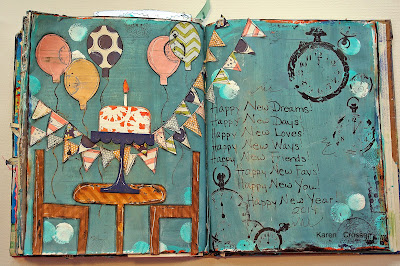 Happy New Dreams!
Happy New Days
Happy New Loves
Happy New Ways
Happy New Friends!
Happy New Favs!
Happy New You!
Happy New Year
Karen